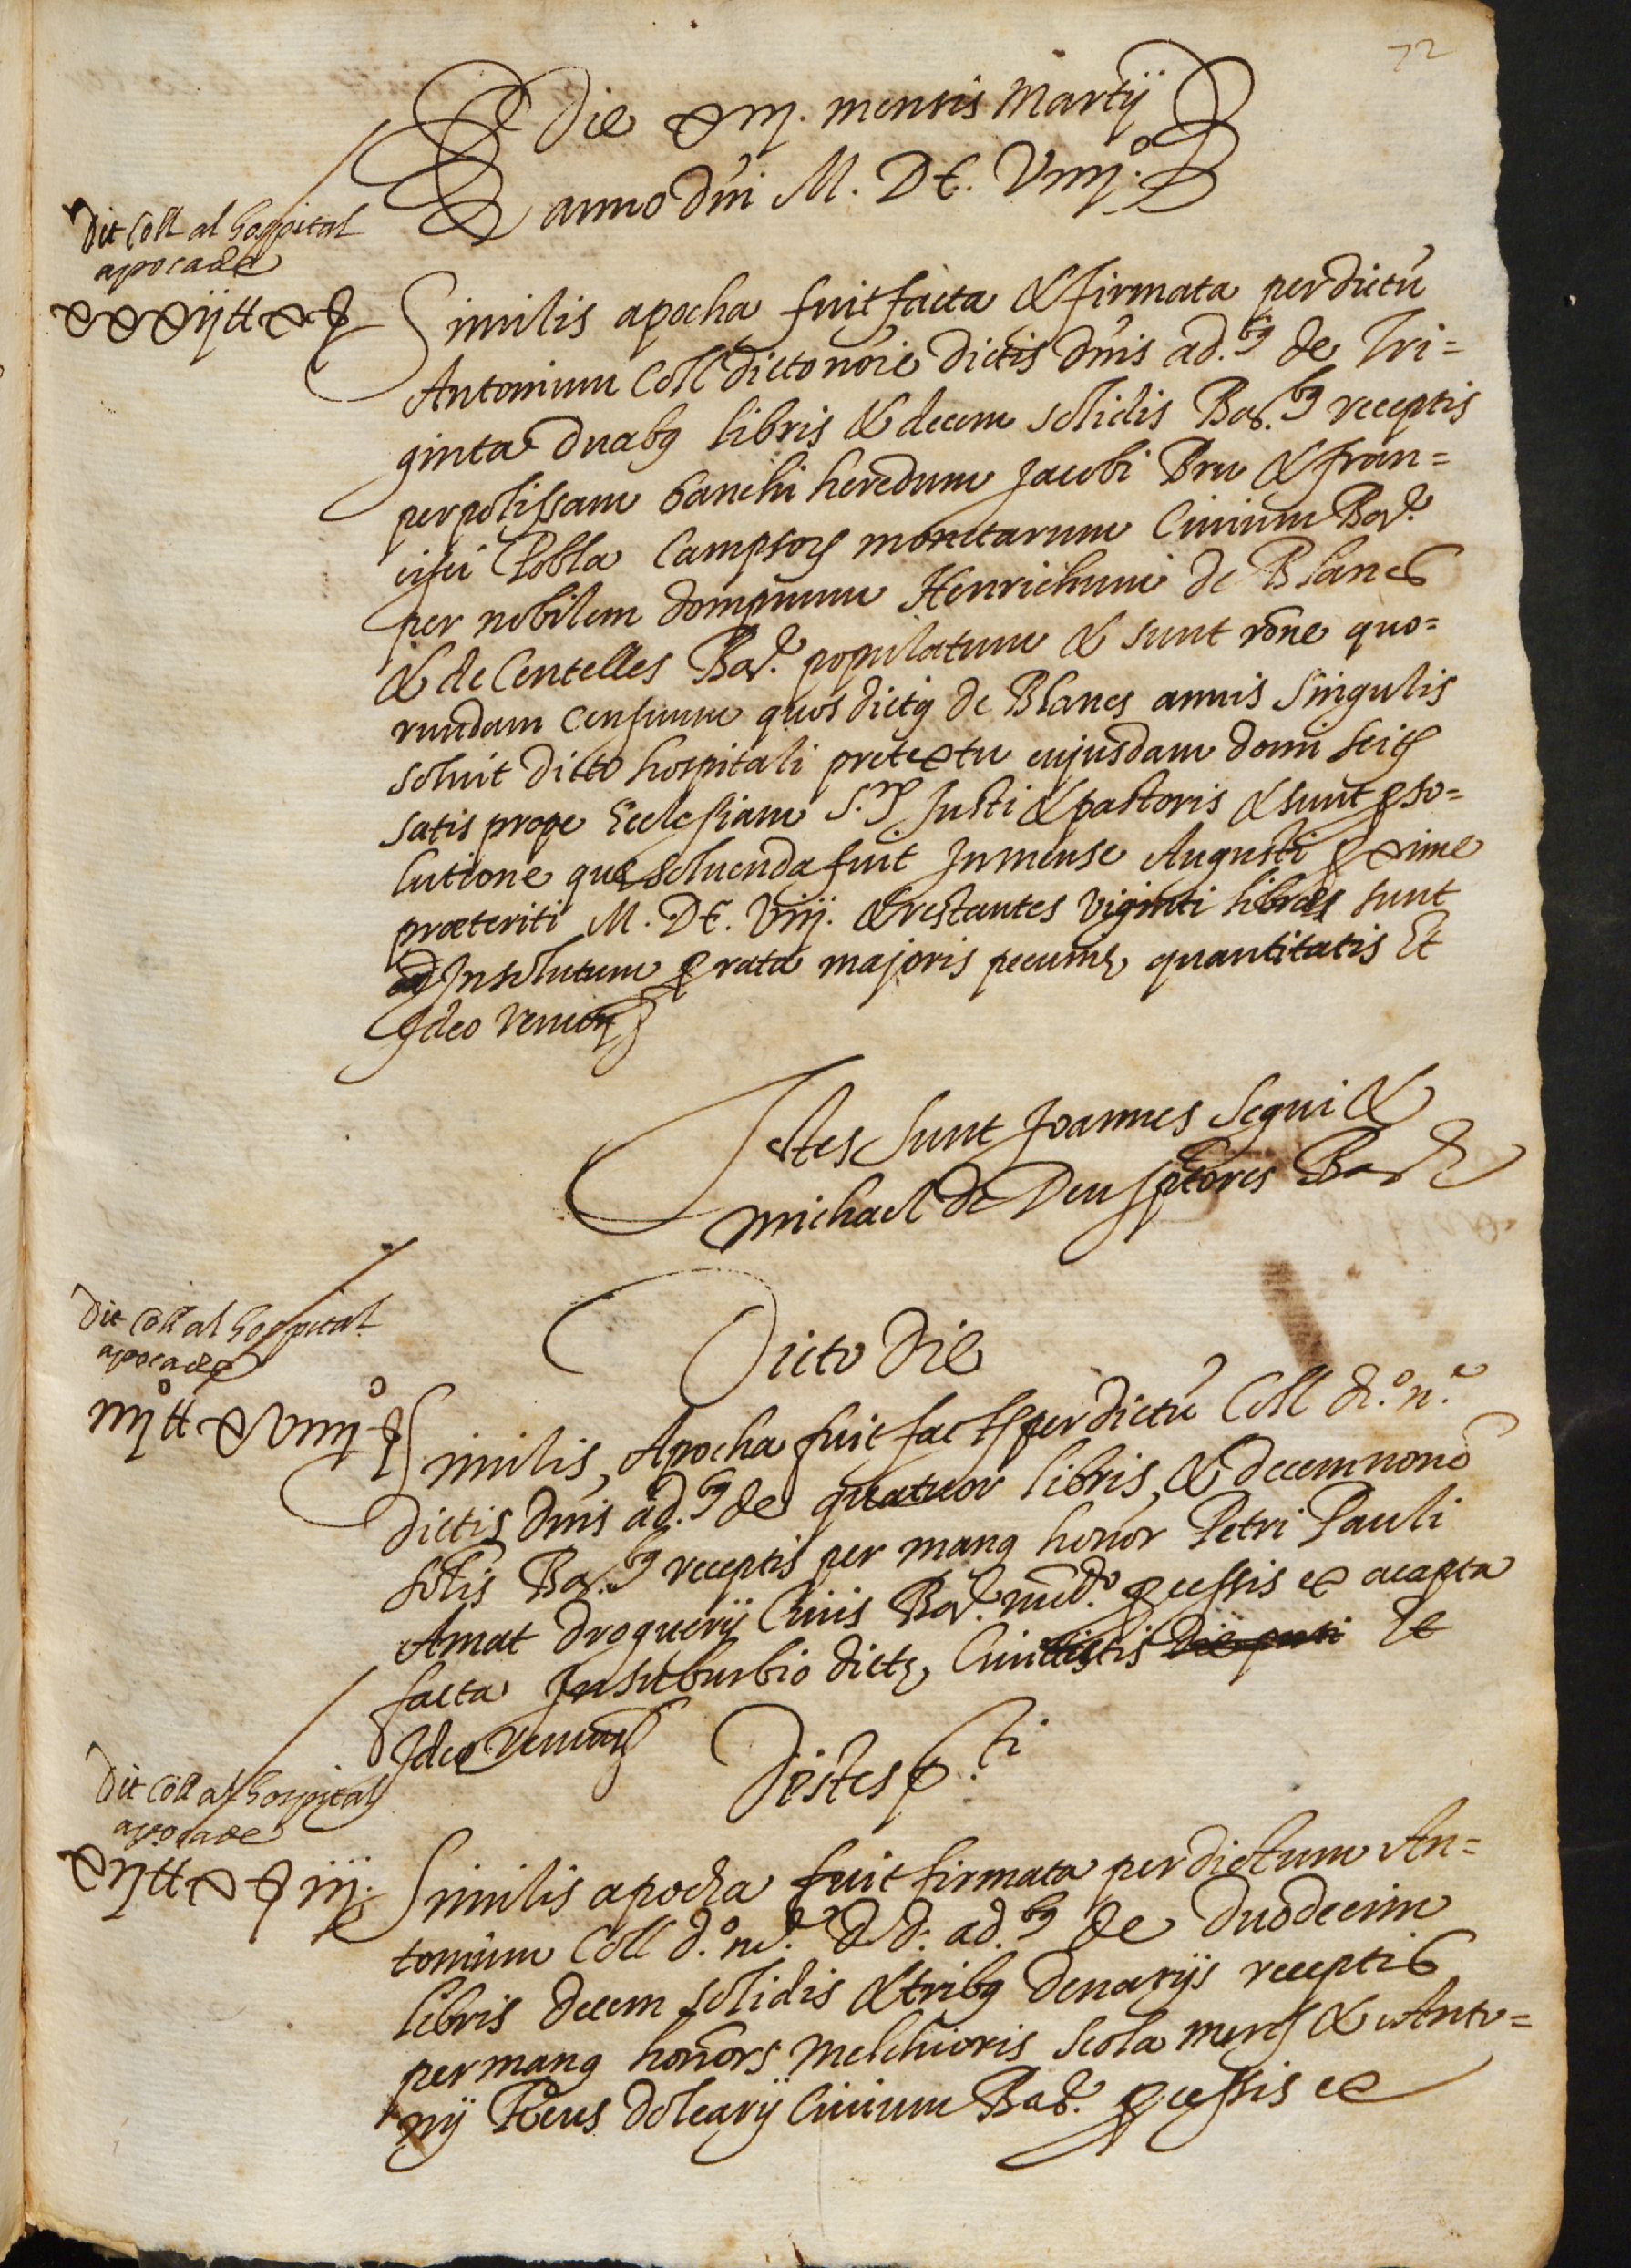 72
Die xiij. mensis Martij
anno Dñi M. DC. Viiij.º
Dit Coll al hospital
apoca de
xxxij tt x ẜ
Similis apocha fuit facta & firmata per dictũ
Antonium Coll dicto nõie dictis Dñis ad.bꝰ de Tri=
ginta duabꝰ libris & decem solidis Bar.bꝰ receptis
per polissam banchi heredum Jacobi Bru & fran=
cisci Lobla Campsorꝭ monetarum Civium Bar.e
per nobilem dompnum Henrichum de Blanes
& de Centelles Bar.e populatum & sunt rõne quo=
rundam Censuum quos dictꝰ de Blanes annis singulis
soluit dicto hospitali pretextu cujusdam domi scitꝭ
satis prope Ecclesiam S.rꝭ Justi & pastoris & sunt ꝓ so=
lutione que soluenda fuit In mense Augusti ꝓxime
præteriti M. DC. Viij. & restantes viginti libres sunt
In solutum ꝓ rata majoris pecuniȩ quantitatis Et
Ideo renunꝭ
Testes sunt Joannes Segui &
michael de Deu sc̃ptores Bar.e
Dicto Die
Dit Coll al hospital
apoca de
iiijº tt xviiijº ẜ
Similis Apocha fuit factꝭ per dictũ Coll d.º n.e
dictis Dñis ad.bꝰ de quatuor libris & decem nono
solis Bar.bꝰ receptis per manꝰ honor Petri Pauli
Amat droguerij Civis Bar.e mẽd.º ꝓcessis ex acapta
facta In suburbio dictȩ Civitatis Et
Ideo renunꝭ
Testes p.ti
Dit Coll al hospital
apoca de
xij tt x ẜ iij.
Similis apocha fuit firmata per dictum An=
tonium Coll d.º n.e d. d. ad.bꝰ de duodecim
libris decem solidis & tribꝰ denarijs receptis
per manꝰ honors Melchioris Scola mercꝭ & Anto=
nij Rieus dolearij Civium Bar.e ꝓcessis ex